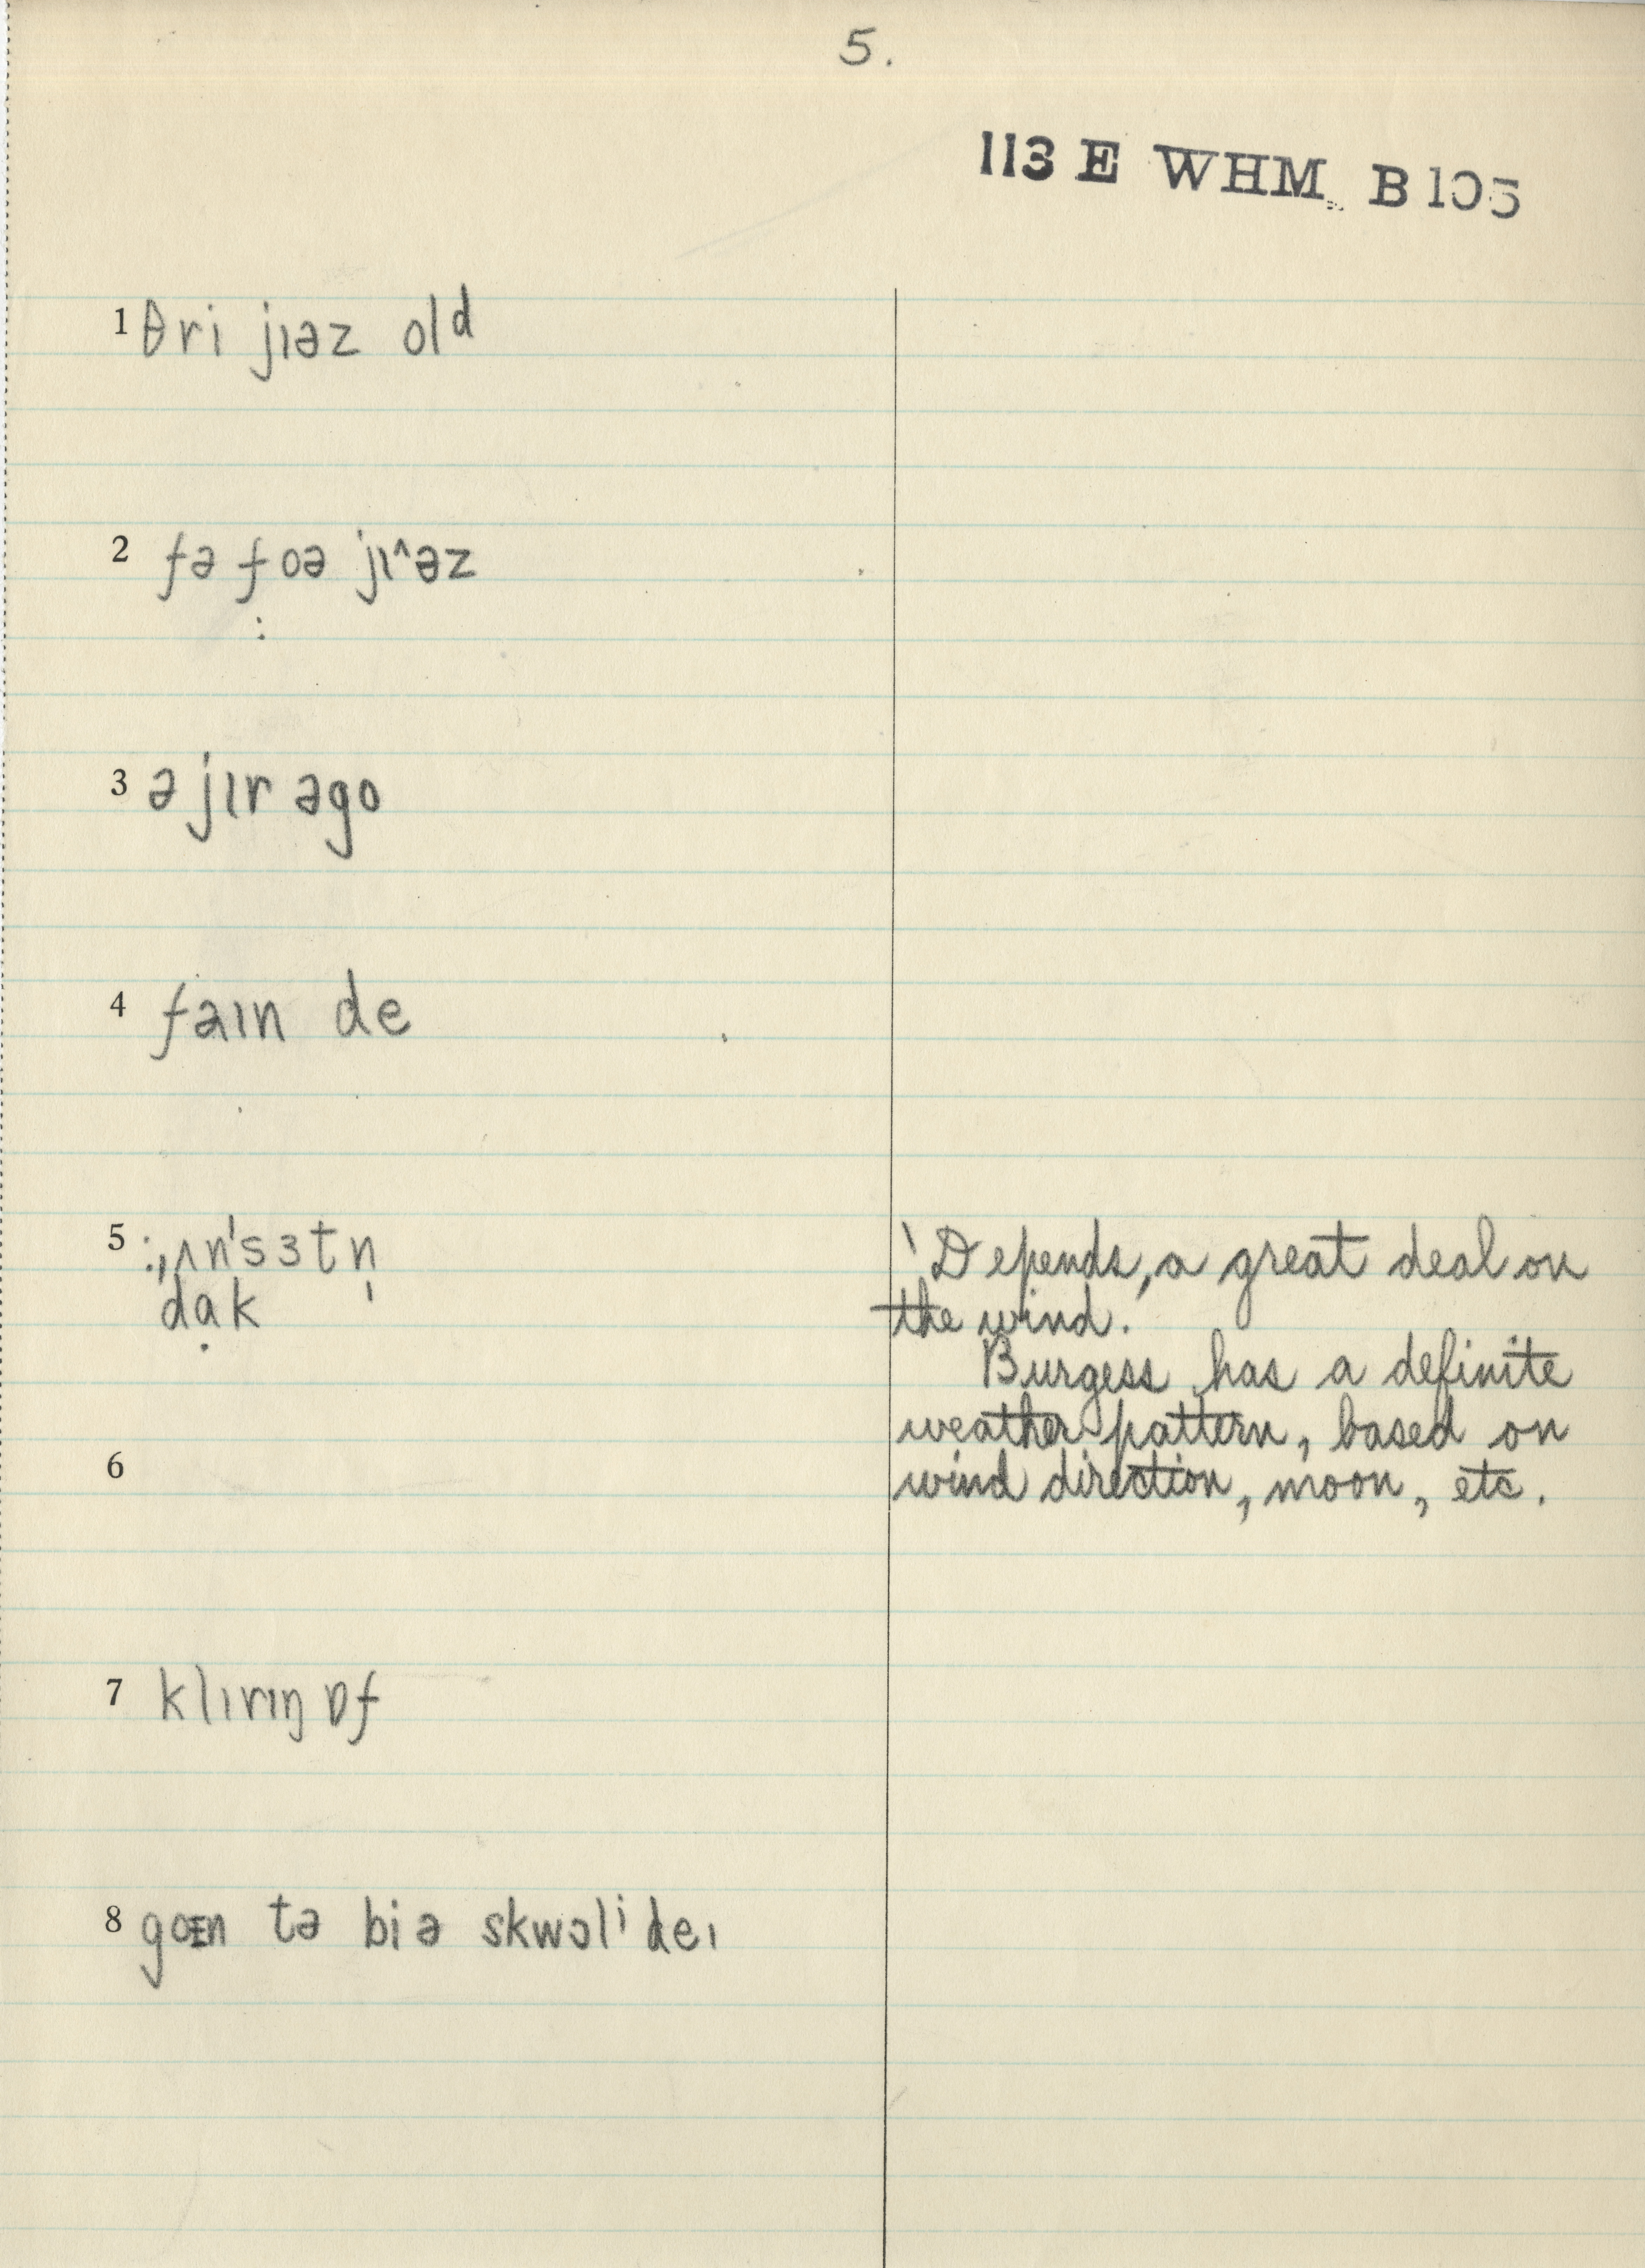 5.
113 E WHM B105
1 θri jɪəz olᵈ
2 fə foə jɪ^əz
3 ə jɪr əgo
4 faɪn de
5 :,ʌn'sɜtn̩
dạk
'Depends, a great deal on
the wind.'
Burgess has a definite
weather pattern, based on
wind direction, moon, etc.
6
7 klɪrɪŋ ɒf
8 goɪn tə bi ə skwɔlⁱ deɪ